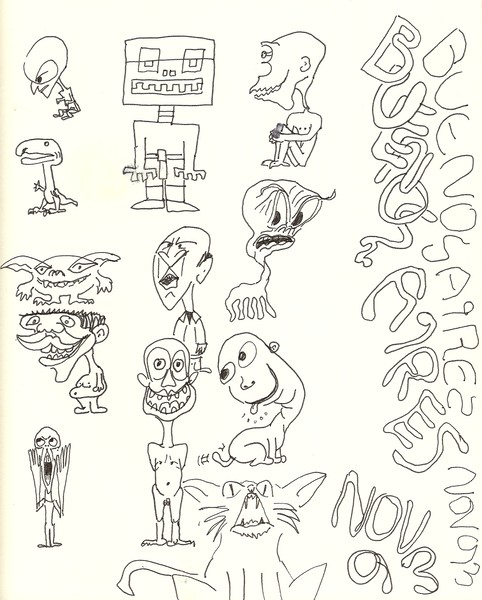 BUENOS AIRES NOV
BUENOS AIRES
NOV
93